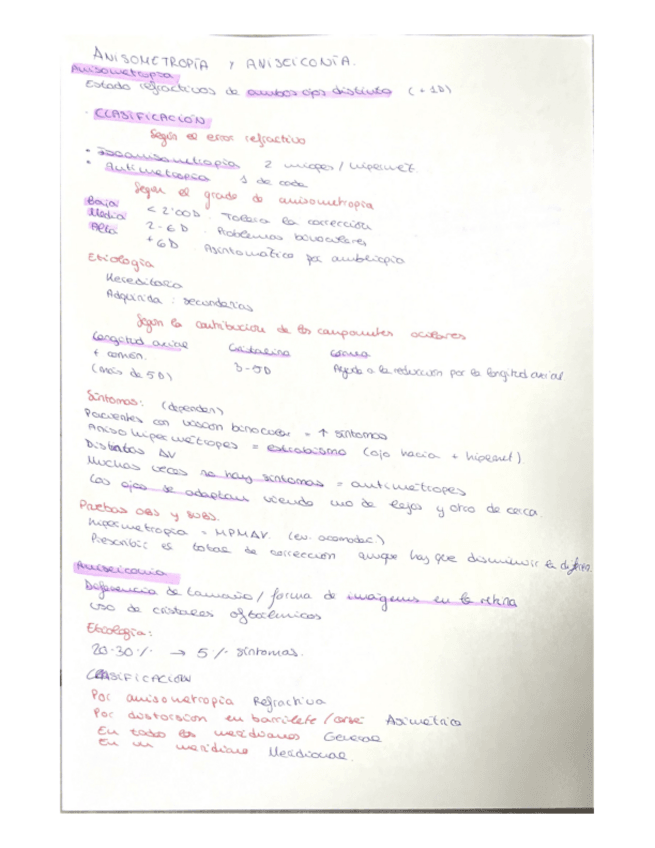 ANISOMETROPÍA Y ANISEICONÍA.
Anisometropía
Estado refractivos de ambos ojos distinto (+1D)
· CLASIFICACIÓN
Según el error refractivo
• Isoanisometropía 2 miopes / hipermet.
• Antimetropía 1 de cada
Según el grado de anisometropía
Baja < 2'00D. Tolera la corrección
Media 2-6D. Problemas binoculares
Alta +6D. Asintomático por ambliopía
Etiología
Hereditario
Adquirida: secundarias
Según la contribución de los componentes oculares
Longitud axial Cristalino Córnea
+ común. 3-5D Ayuda a la reducción por la longitud axial
(más de 5D)
Síntomas: (dependen)
Pacientes con visión binocular = ↑ síntomas
Anisohipermétropes = estrabismo (ojo hacia + hipermet)
Distintas AV
Muchas veces no hay síntomas = antimétropes
Los ojos se adaptan viendo uno de lejos y otro de cerca.
Pruebas OBJ y SUBJ.
Hipermetropía = MPMAV. (ev. acomodac)
Prescribir el total de corrección aunque hay que disminuir la diferen.
Aniseiconia
Diferencia de tamaño / forma de imágenes en la retina
uso de cristales oftálmicos
Etiología:
20-30% → 5% síntomas.
CLASIFICACIÓN
Por anisometropía Refractiva
Por distorsión en barrilete / Asimétrica
En todos los meridianos General
En un meridiano Meridional.